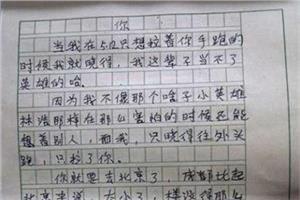 你
当我在5.12只想拉着你手跑的
时候我就晓得,我这辈子当不了
英雄的哈。
因为我不像那个啥子小英雄
林浩那样在那么害怕的时候还能
想着别人,而我,只晓得往外头
跑,只拉了你。
你就要去北京了,成都比起
北京来说,太小了,楼没得那么